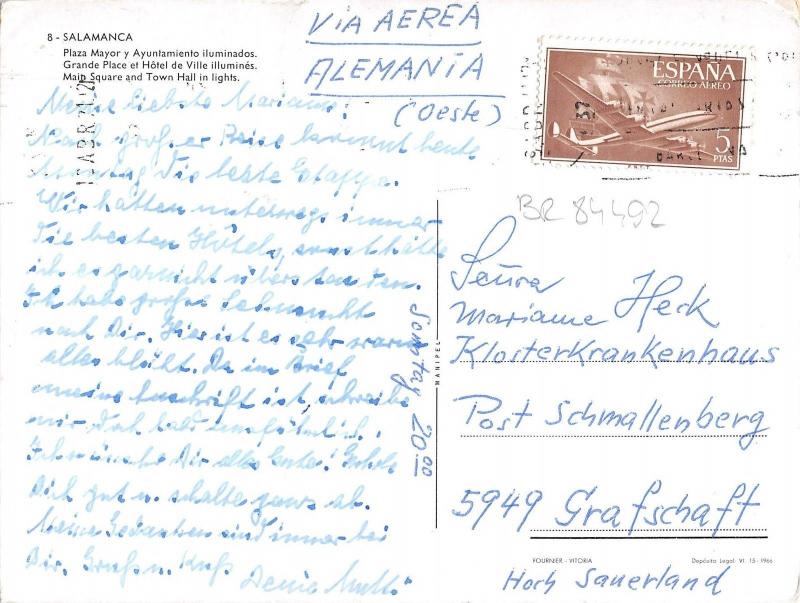 8 - SALAMANCA
Plaza Mayor y Ayuntamiento iluminados.
Grande Place et Hôtel de Ville illuminés.
Main Square and Town Hall in lights.
VIA AEREA
ALEMANIA
(Oeste)
ESPAÑA
CORREO AEREO
5
PTAS
BARCELONA
BR 84492
Meine liebste Mariame!
Nach großer Reise kommt heute
die letzte Etappe.
Wir hatten unterwegs immer
die besten Hotels, sonst hätte
ich es gar nicht überstanden.
Ich habe große Sehnsucht
nach Dir. Hier ist es sehr warm
alles blüht. Da im Brief
meine Anschrift ist, schreibe
mir doch bald ausführlich.
Ich wünsche Dir alles Gute! Erhole
Dich gut u. schalte ganz ab.
Meine Gedanken sind immer bei
Dir. Gruß u. Kuß Deine Mutti
Sonntag 20.00
MANIPEL
Señora
Mariame Heck
Klosterkrankenhaus
Post Schmallenberg
5949 Grafschaft
FOURNIER - VITORIA
Depósito Legal: VI. 15 - 1966
Hoch Sauerland